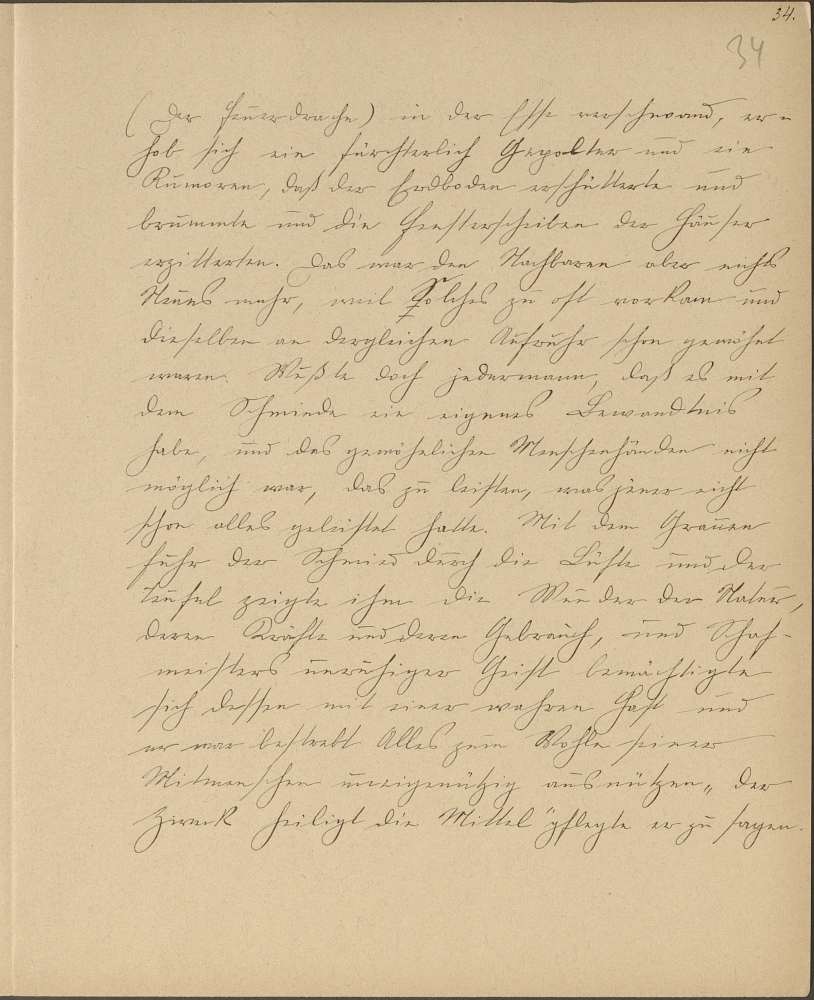 34.
34
(Der Feuerdrache) in der Esse verschwand, er=
hob sich ein fürchterlich Gepolter und ein
Rumoren, daß der Erdboden erschütterte und
brummte und die Fensterscheiben der Häuser
erzitterten. Das war den Nachbaren aber nichts
Neues mehr, weil Solches zu oft vorkam und
dieselben an dergleichen Aufruhr schon gewöhnt
waren. Wußte doch jedermann, daß es mit
dem Schmiede ein eigenes Bewandtnis
habe, und das gewöhnlichen Menschenhänden nicht
möglich war, das zu leisten, was jener nicht
schon alles geleistet hatte. Mit dem Grauen
fuhr der Schmied durch die Lüfte und der
Teufel zeigte ihm die Wunder der Natur,
deren Kräfte und deren Gebrauch, und Schaf-
meisters unruhiger Geist bemächtigte
sich dessen mit einer wahren Hast und
er war bestrebt Alles zum Wohle seiner
Mitmenschen uneigenützig ausnützen „ der
Zweck heiligt die Mittel" pflegte er zu sagen.